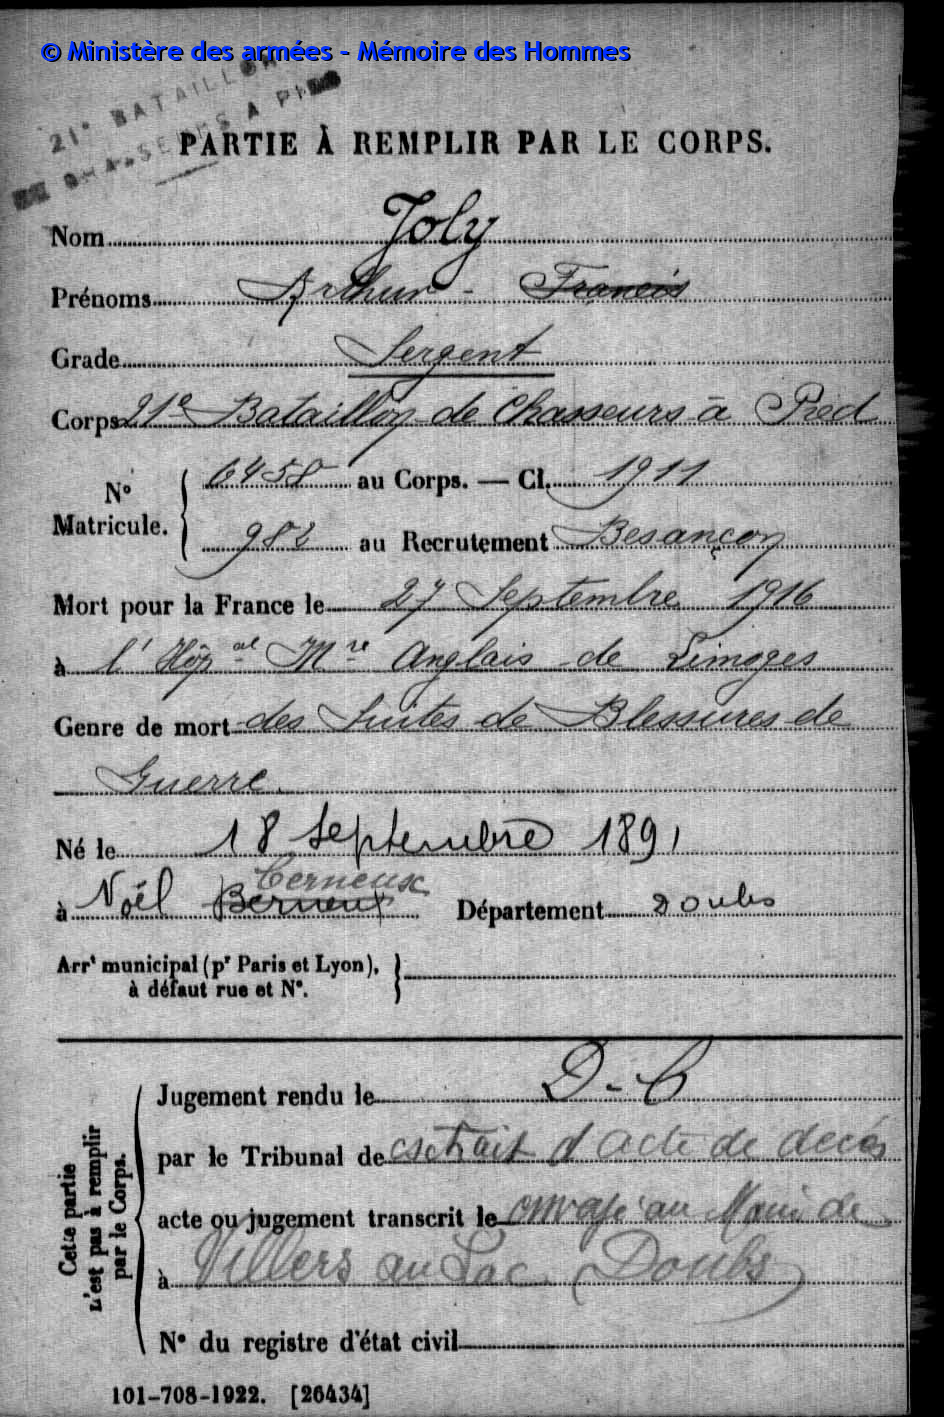 © Ministère des armées - Mémoire des Hommes
21e BATAILLON
DE CHASSEURS A PIED
PARTIE À REMPLIR PAR LE CORPS.
Nom Joly
Prénoms Arthur - Francis
Grade Sergent
Corps 21e Bataillon de Chasseurs à Pied
No Matricule. 6458 au Corps. — Cl. 1911
982 au Recrutement Besançon
Mort pour la France le 27 Septembre 1916
à l'Hôpal Mre Anglais de Limoges
Genre de mort des Suites de Blessures de
Guerre.
Né le 18 Septembre 1891
Cerneux
à Noël Berneux Département Doubs
Arrt municipal (pr Paris et Lyon),
à défaut rue et N°.
Cette partie
n'est pas à remplir
par le Corps.
Jugement rendu le D-C
par le Tribunal de extrait d'acte de décès
acte ou jugement transcrit le envoyé au Maire de
à Villers au Lac (Doubs)
N° du registre d'état civil
101-708-1922. [26434]